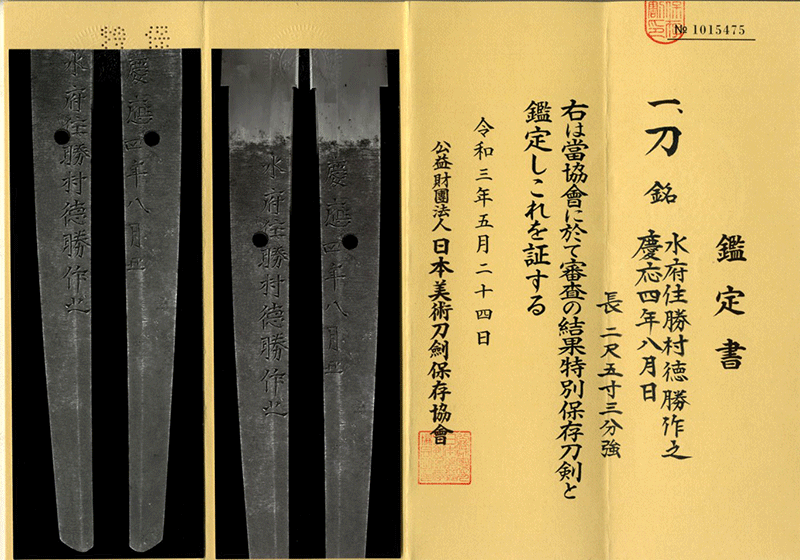 № 1015475
鑑定書
一、刀 銘
水府住勝村徳勝作之
慶応四年八月日
長 二尺五寸三分強
右は當協會に於て審査の結果特別保存刀剣と
鑑定しこれを証する
令和三年五月二十四日
公益財團法人 日本美術刀劍保存協會
水府住勝村德勝作之
慶應四年八月日
水府住勝村德勝作之
慶應四年八月日